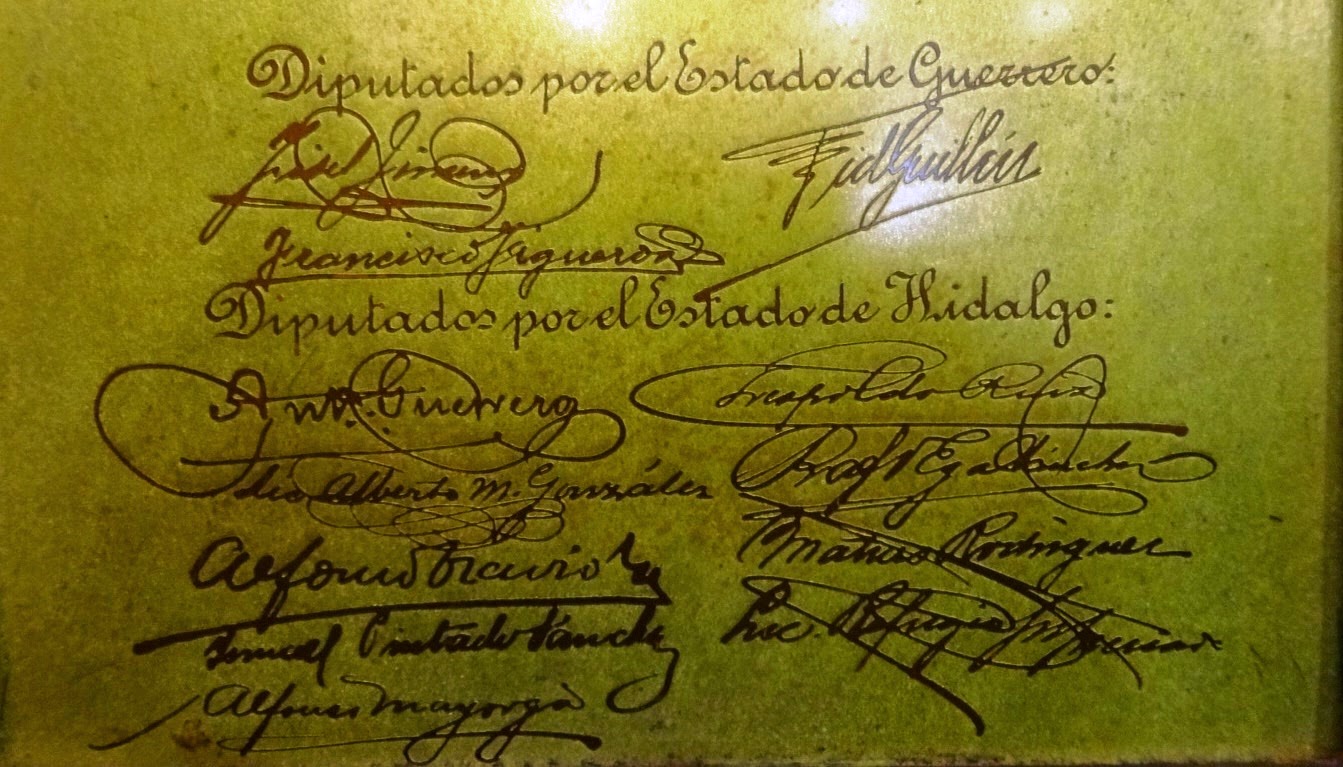 Diputados por el Estado de Guerrero:
Fidel Jiménez Fidel Guillén
Francisco Figueroa
Diputados por el Estado de Hidalgo:
Antº. Guerrero Leopoldo Ruiz
Lic Alberto M. González Raf Vega Sánchez
Alfonso Cravioto Matías Rodríguez
Ismael Pintado Sánchez Lic. Refugio M. Mercado
Alfonso Mayorga